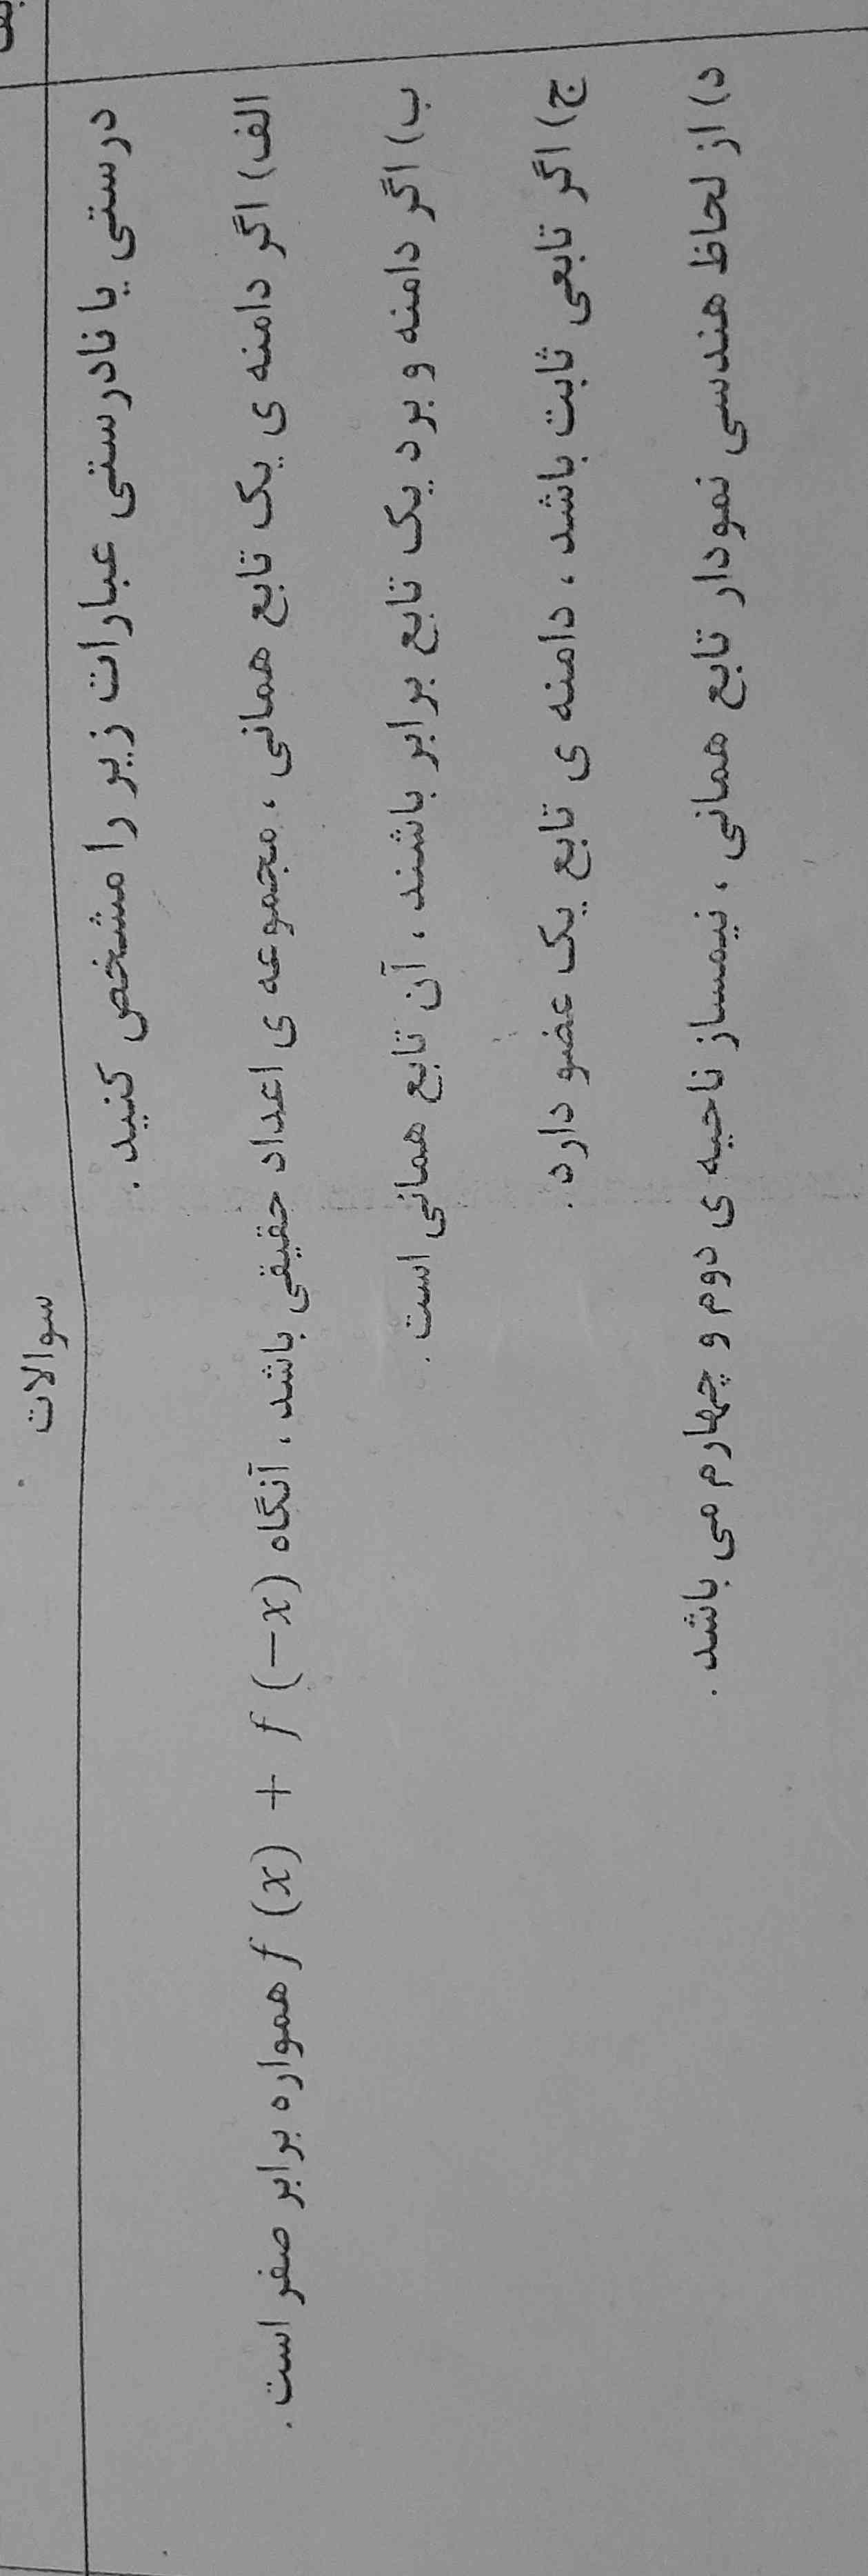 سوالات
درستی یا نادرستی عبارات زیر را مشخص کنید .
الف) اگر دامنه ی یک تابع همانی ، مجموعه ی اعداد حقیقی باشد ، آنگاه f (x) + f (−x) همواره برابر صفر است .
ب) اگر دامنه و برد یک تابع برابر باشند ، آن تابع همانی است .
ج) اگر تابعی ثابت باشد ، دامنه ی تابع یک عضو دارد .
د) از لحاظ هندسی نمودار تابع همانی ، نیمساز ناحیه ی دوم و چهارم می باشد .